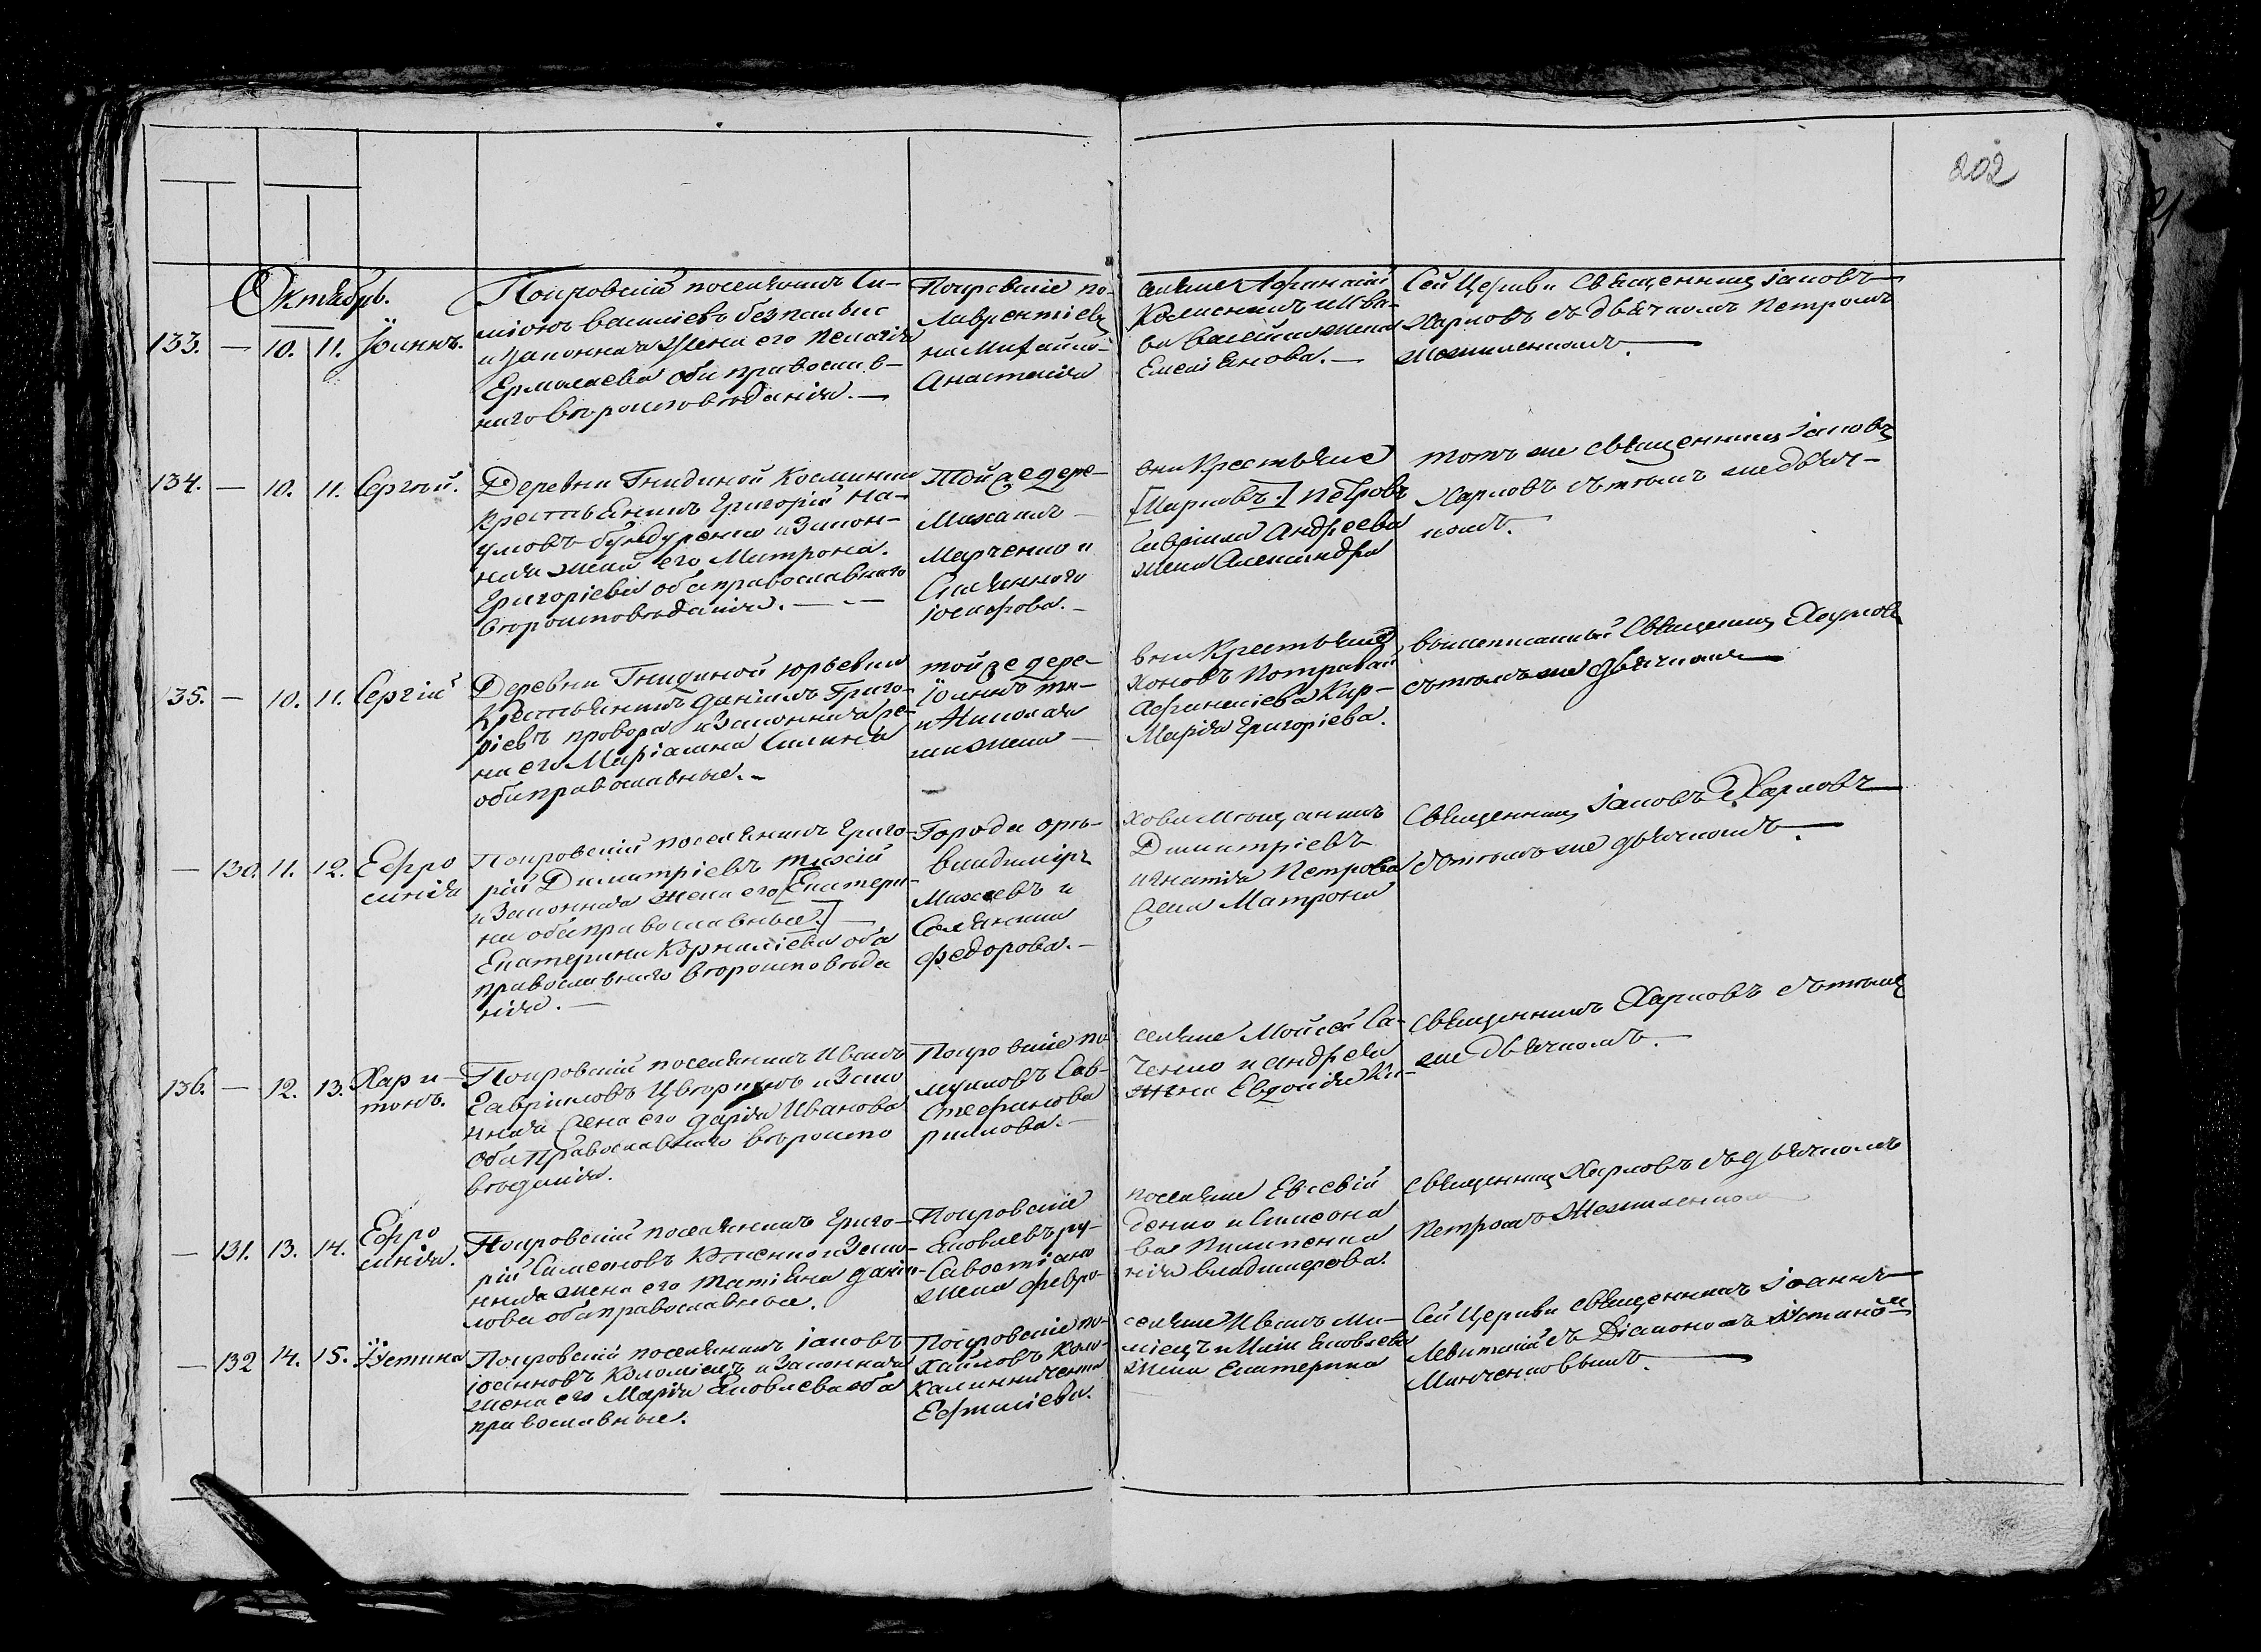 202
Октябрь.
133. — 10. 11. Іоаннъ.
Покровскій поселянинъ Си-
міонъ Василіевъ
и Законная Жена его Пелагія
Ермолаева оба православ-
наго вѣроисповѣданія. —
Покровскіе по-
Лаврентіевъ
на Михайло-
Анастасія
селяне Афанасій
ва жена
Емелiянова. —
Сей Церкви Священникъ Іаковъ
Харловъ съ дьячкомъ Петромъ
134. — 10. 11. Сергій.
Деревни Гнидиной Косминки
Крестьянинъ Григорій На-
умовъ Бундуренко и Закон-
ная жена его Матрона
Григоріева оба православнаго
вѣроисповѣданія. — —
Той же дере-
Михаилъ
Марченко и
Іосифова. —
вни Крестьяне
[Марковъ.] Петровъ
Гавріила Андреева
жена Александра
тотъ же священникъ Іаковъ
Харловъ съ тѣмъ же дьяч-
комъ.
135. — 10. 11. Сергій
Деревни Гнидиной Юрьевки
Крестьянинъ Даніилъ Григо-
ріевъ Провора и Законная Же-
на его Маріамна Силина
оба православные. —
той же дере-
Іоаннъ ти-
и Николая
ши жена —
вни Крестьяне
хоновъ
Афанасіева Кир-
Марія Григоріева.
вышеписанный Священникъ Харловъ
съ тѣмъ же дьячкомъ
— 130. 11. 12. Ефро
синія
Покровскій поселянинъ Григо-
рій Димитріевъ
и Законная жена его [Екатери-
на оба православные.]
Екатерина Корниліева оба
православнаго вѣроисповѣда
нія. —
Города Орѣ-
Владиміръ
Михѣевъ и
Федорова. —
хова Мѣщанинъ
Димитріевъ
Игнатія Петрова
Жена Матрона
Священникъ Іаковъ Харловъ
съ тѣмъ же дьячкомъ.
136. — 12. 13. Хари-
тонъ.
Покровскій поселянинъ Иванъ
Гавріиловъ и Зако
нная Жена его Дарія Иванова
оба Православнаго вѣроиспо
вѣданія.
Покровскіе по
муиловъ Сав-
Стефанова
рилова. —
селяне Мойсей Са-
ченко и Андрея
жена Евдокія Ки-
Священникъ Харловъ съ тѣмъ
же дьячкомъ.
— 131. 13. 14. Ефро
синія.
Покровскій поселянинъ Григо-
рій Симеоновъ и Зако-
нная жена его Татіяна Даніи-
лова оба православные.
Покровскіе
Яковлевъ ру-
Савостіано
жена Февро-
поселяне Евсевій
денко и Симеона
ва Пилипенка
нія Владимерова.
Священникъ Харловъ съ дьячкомъ
Петромъ
— 132 14. 15. Іустина
Покровскій поселянинъ Іаковъ
Іоанновъ Коломіецъ и Законная
жена его Марія Яковлева оба
православные.
Покровскіе по-
хайловъ Коло-
Калинниченка
Ефтиміева.
селяне Иванъ Ми-
міецъ и Иліи Яковлева
жена Екатерина
Сей Церкви Священникъ Іоаннъ
Левитскій съ Діакономъ Іустиномъ
Минченковымъ.